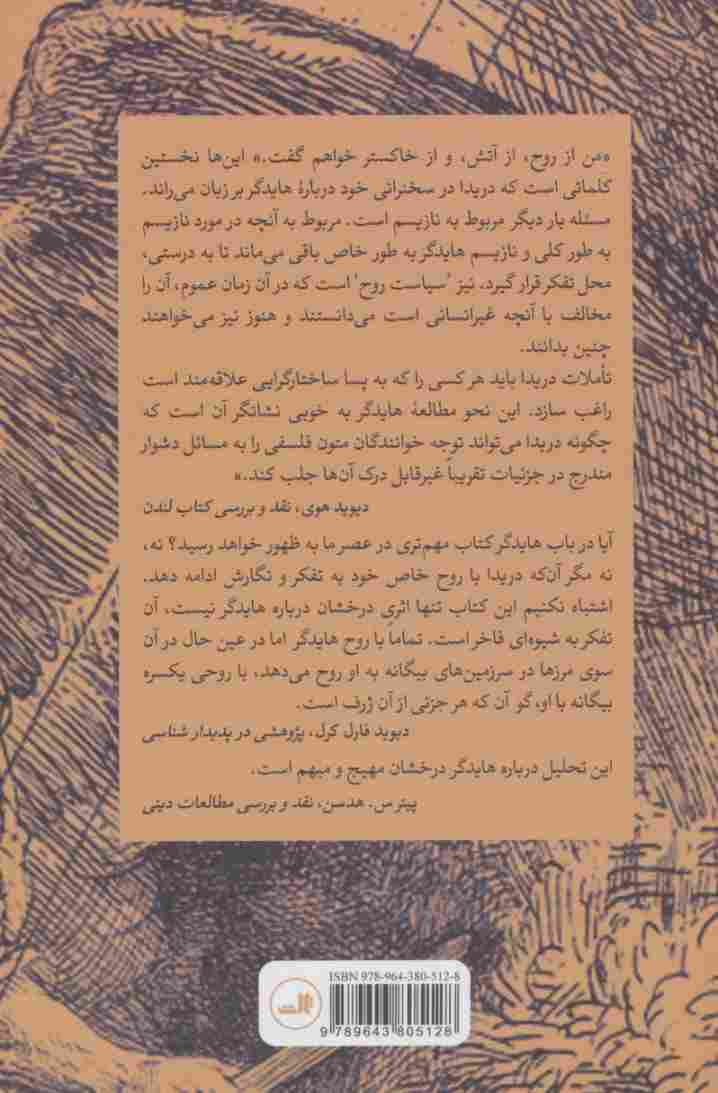 «من از روح، از آتش، و از خاکستر خواهم گفت.» این‌ها نخستین
کلماتی است که دریدا در سخنرانی خود دربارهٔ هایدگر بر زبان می‌راند.
مسئله بار دیگر مربوط به نازیسم است. مربوط به آنچه در مورد نازیسم
به طور کلی و نازیسم هایدگر به طور خاص باقی می‌ماند تا به درستی،
محل تفکر قرار گیرد. نیز ‘سیاست روح’ است که در آن زمان عموم، آن را
مخالف با آنچه غیرانسانی است می‌دانستند و هنوز نیز می‌خواهند
چنین بدانند.
تأملات دریدا باید هر کسی را که به پسا ساختارگرایی علاقه‌مند است
راغب سازد. این نحو مطالعهٔ هایدگر به خوبی نشانگر آن است که
چگونه دریدا می‌تواند توجه خوانندگان متون فلسفی را به مسائل دشوار
مندرج در جزئیات تقریباً غیرقابل درک آن‌ها جلب کند.»
دیوید هوی، نقد و بررسی کتاب لندن
آیا در باب هایدگر کتاب مهم‌تری در عصر ما به ظهور خواهد رسید؟ نه،
نه مگر آن‌که دریدا با روح خاص خود به تفکر و نگارش ادامه دهد.
اشتباه نکنیم این کتاب تنها اثری درخشان درباره هایدگر نیست، آن
تفکر به شیوه‌ای فاخر است. تماما با روح هایدگر اما در عین حال در آن
سوی مرزها در سرزمین‌های بیگانه به او روح می‌دهد، با روحی یکسره
بیگانه با او، گو آن که هر جزئی از آن ژرف است.
دیوید فارل کرل، پژوهشی در پدیدار شناسی
این تحلیل درباره هایدگر درخشان مهیج و مبهم است.
پیتر س. هدسن، نقد و بررسی مطالعات دینی
ISBN 978-964-380-512-8
9 789643 805128